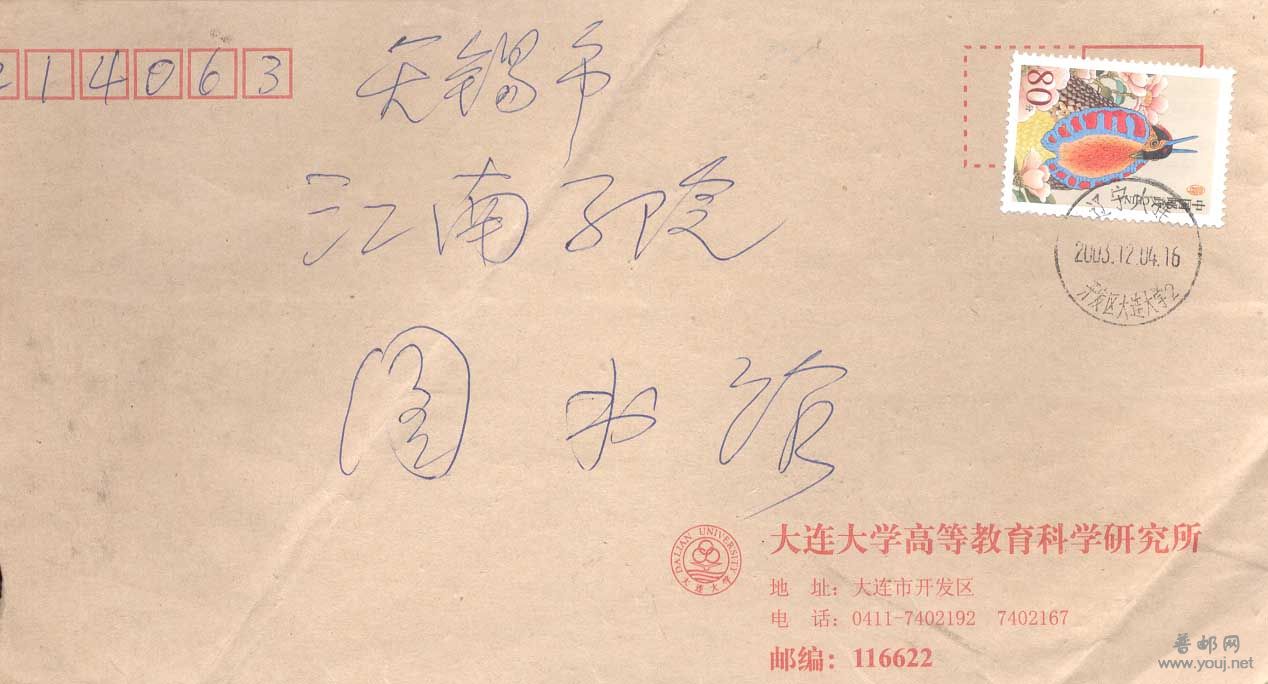 214063
无锡市
江南学院
图书馆
80分
中国邮政
辽宁大连
2003.12.04.16
开发区大连大学2
DALIAN UNIVERSITY
大连大学
大连大学高等教育科学研究所
地 址：大连市开发区
电 话：0411-7402192 7402167
邮编：116622
普邮网
www.youj.net